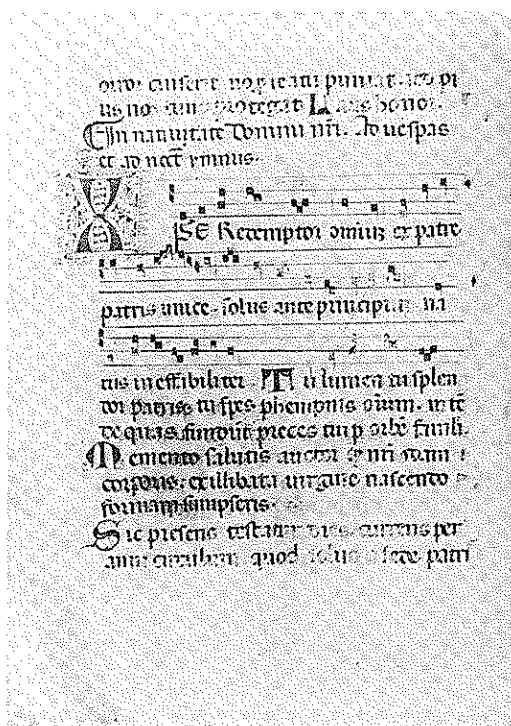 nos protegat Laus honor.
In natiuitate Domini nr̄i. Ad uespas
et ad noct̄ ymnus.
XPE Redemptor omiuz ex patre
patris unice. solus ante principium na
tus ineffibiliter. Tu lumen tu splen
dor patris. tu spes phennis oīum. inte
de quas fundūt preces tui p orbē famli.
Memento salutis auctor qͥ nr̄i quon
corporis. ex illibata uirgine nascendo
formam sumpseris.
Sic presens testatur dies. currens per
anni circulum quod solus a sede patri